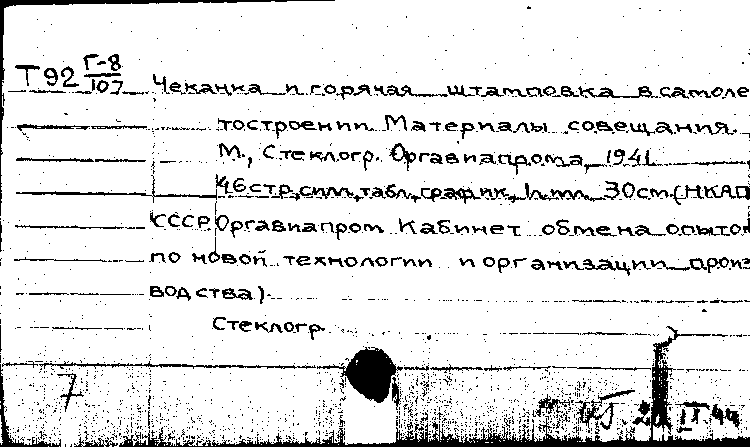 Т92 Г-8/107
Чеканка и горячая штамповка в самоле
тостроении. Материалы совещания.
М., Стеклогр. Оргавиапрома, 1941
46 стр., силл., табл., график, 30 см. (НКАП
СССР Оргавиапром. Кабинет обмена опытом
по новой технологии и организации произ
водства).
Стеклогр.
7
IV 44